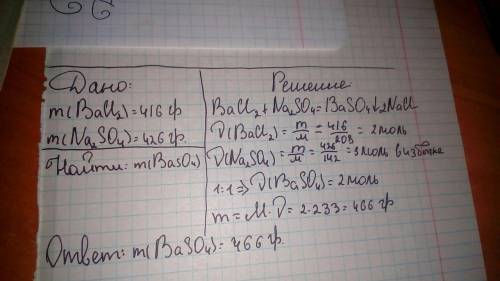 Дано:
m(BaCl₂)=416 гр
m(Na₂SO₄)=426 гр.
Найти: m(BaSO₄)
Решение:
BaCl₂+Na₂SO₄=BaSO₄↓+2NaCl
ν(BaCl₂)=m/M=416/208=2 моль
ν(Na₂SO₄)=m/M=426/142=3 моль в избытке
1:1⇒ν(BaSO₄)=2 моль
m=M·ν=2·233=466 гр
Ответ: m(BaSO₄)=466 гр.